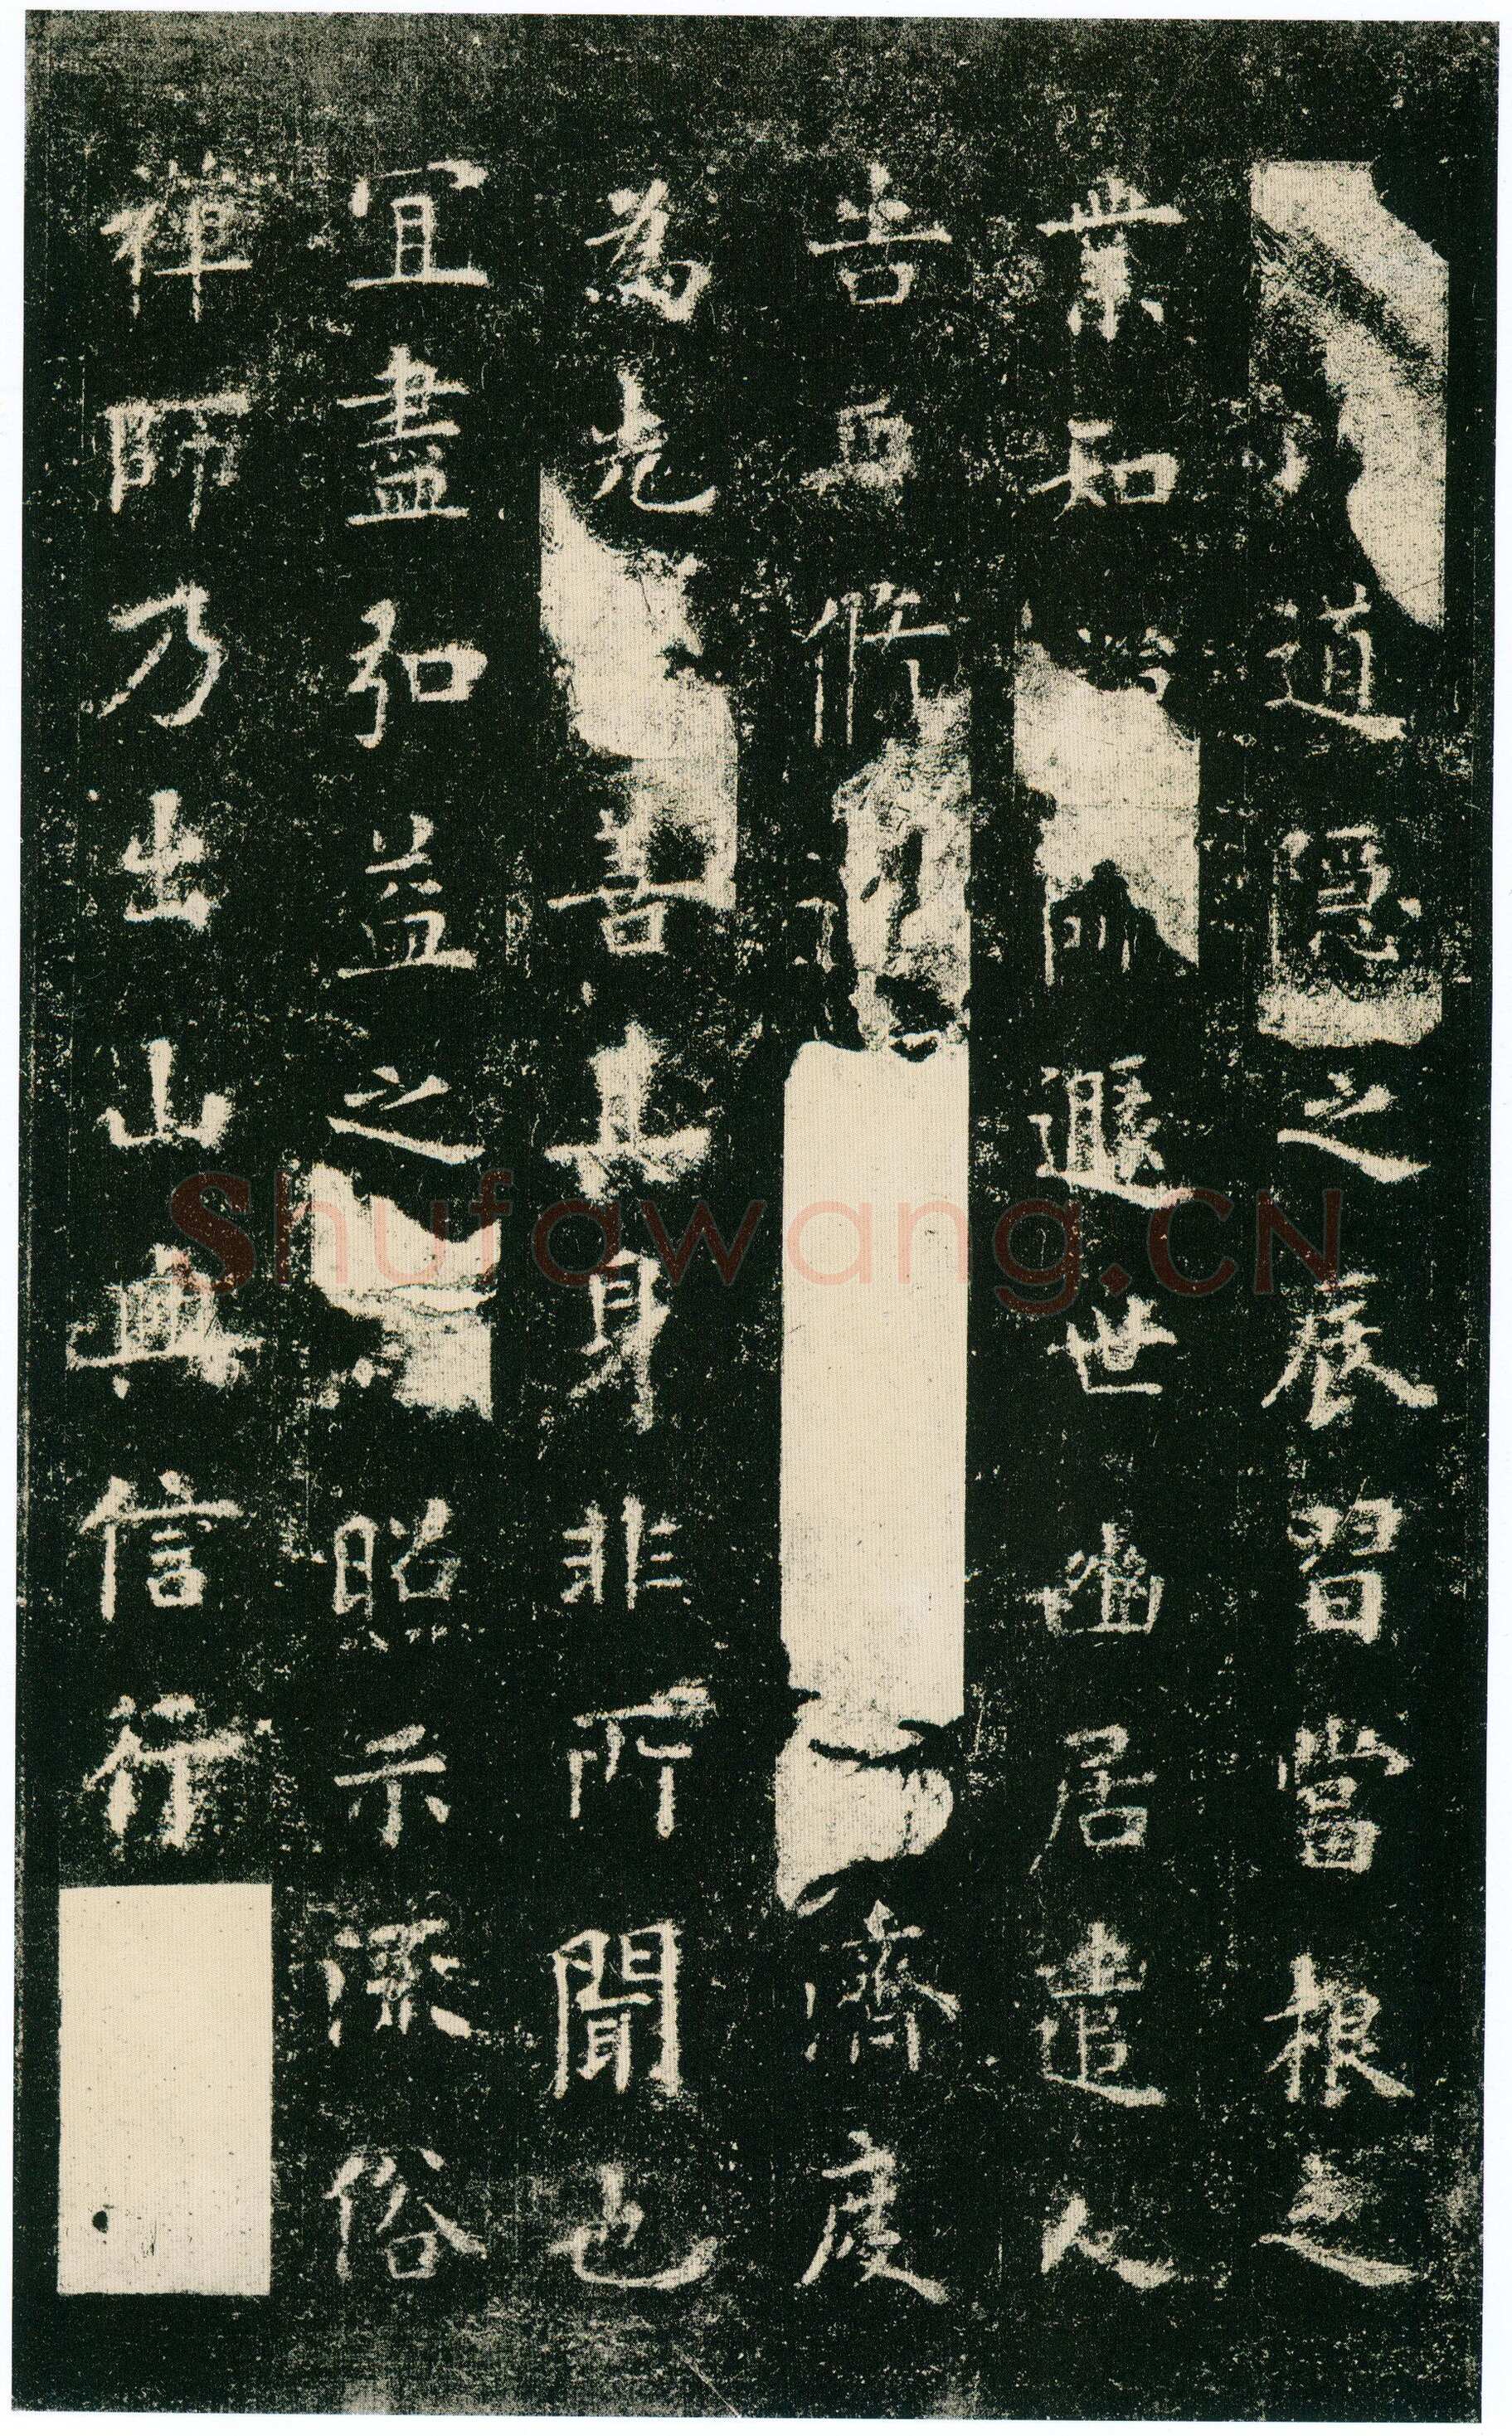 道隱之辰習當根之
業知遯世幽居遣人
告曰修濟度
為先善其身非所聞也
宜盡弘益之昭示俗
禪師乃出山與信行
Shufawang.CN